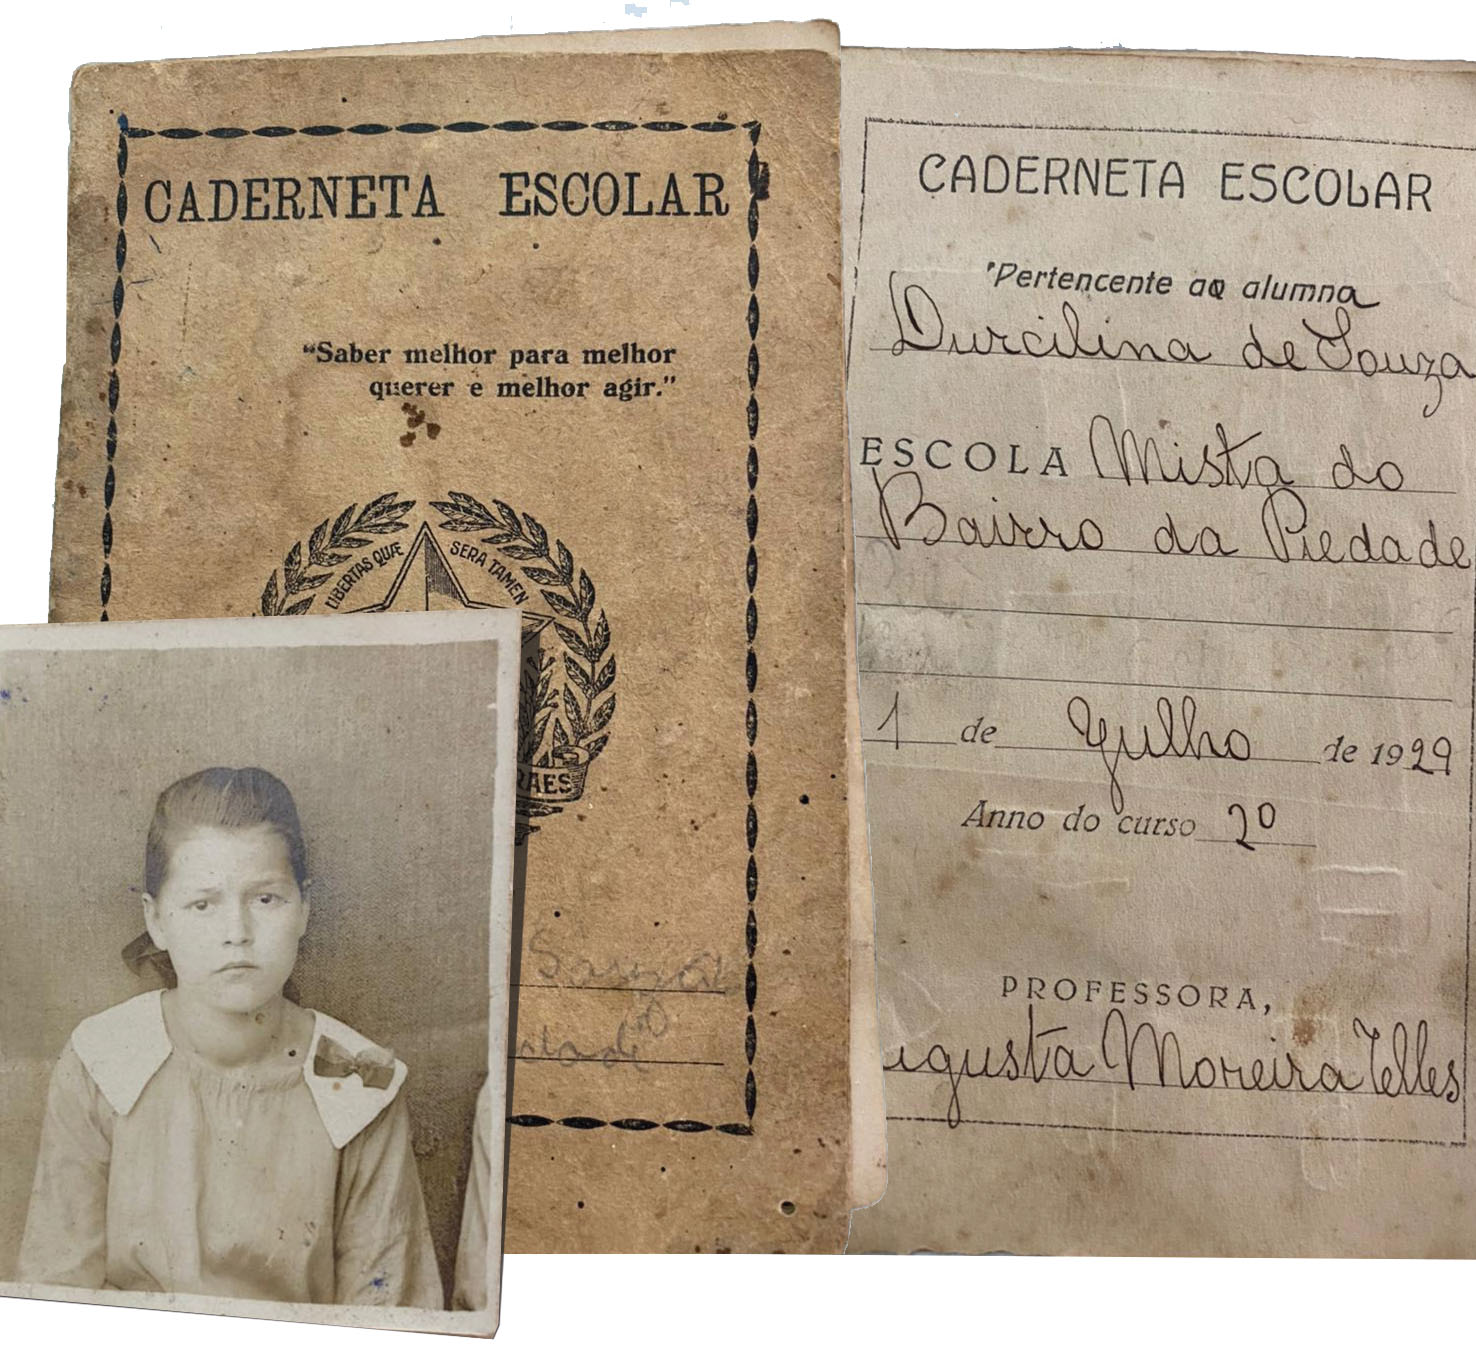 CADERNETA ESCOLAR
“Saber melhor para melhor
querer e melhor agir.”
LIBERTAS QUÆ SERA TAMEN
RAES
CADERNETA ESCOLAR
Pertencente ao alumna
Durcilina de Souza
ESCOLA Mista do
Bairro da Piedade
1 de Yulho de 1929
Anno do curso 2º
PROFESSORA,
ugusta Moreira Telles